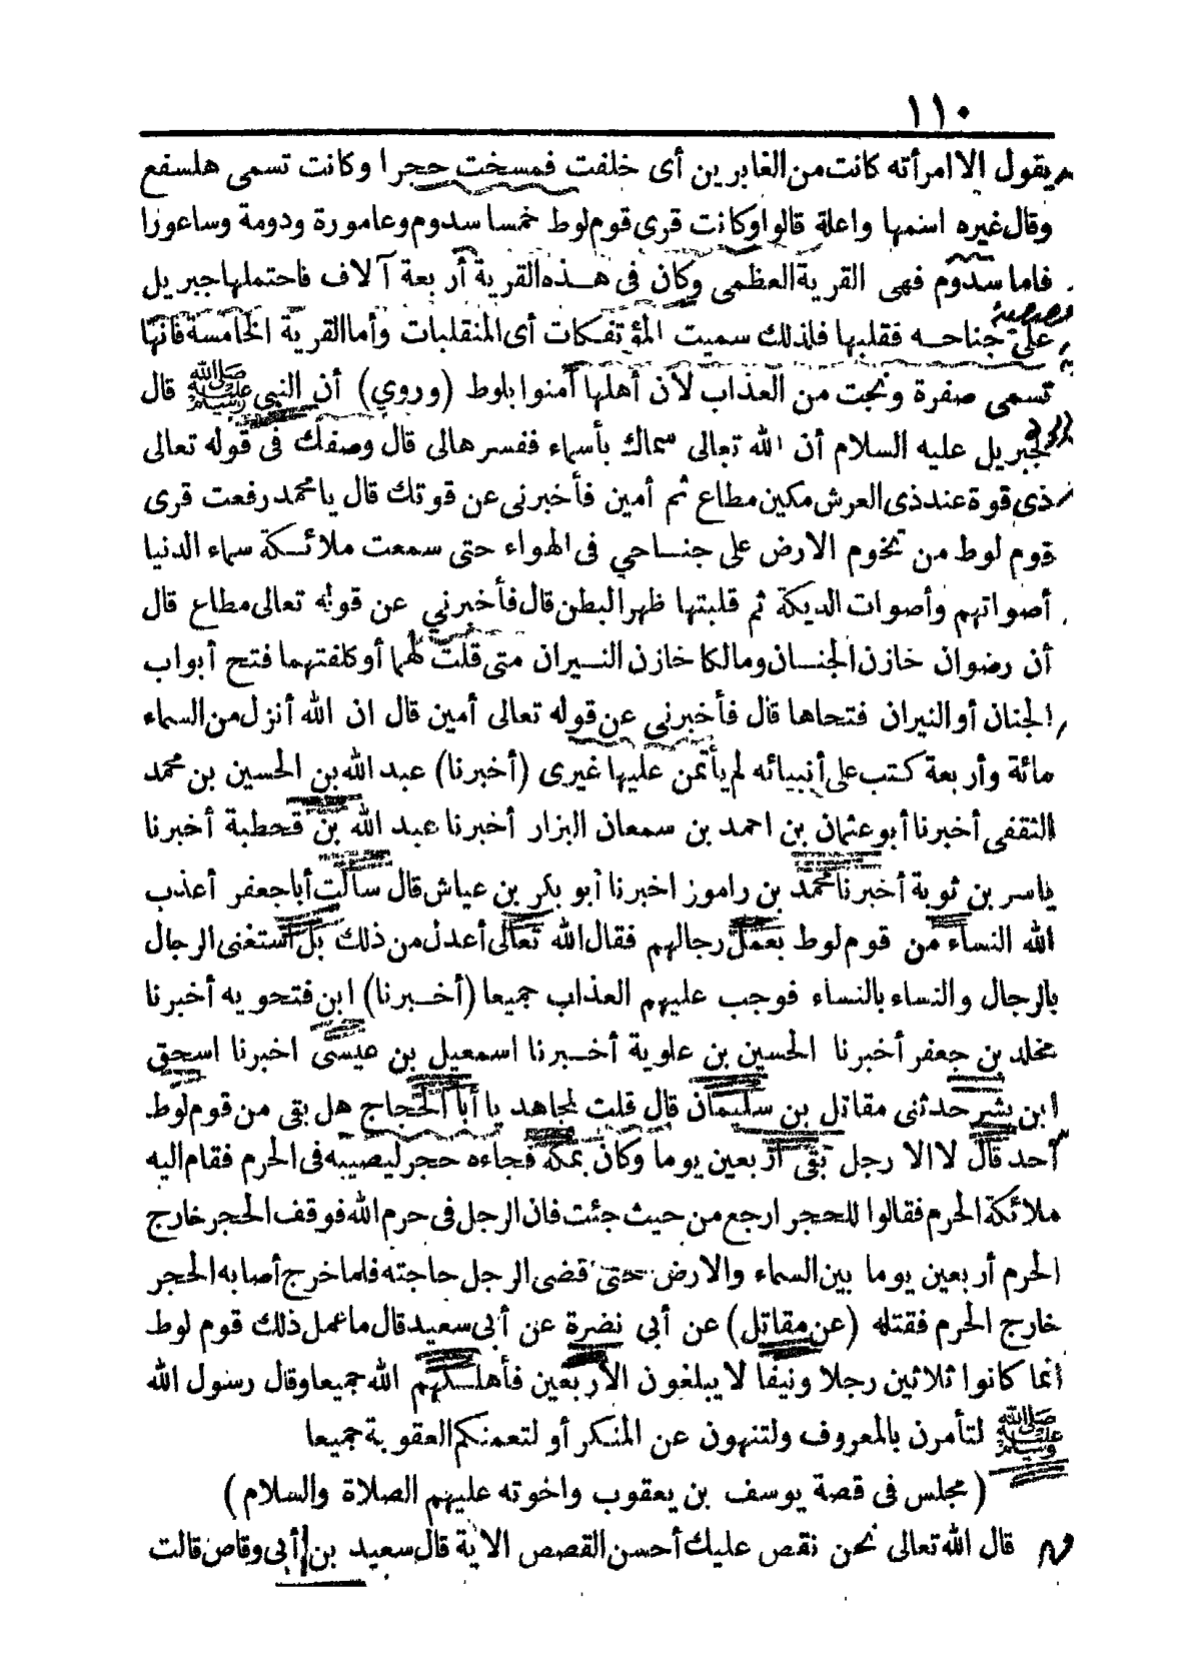 ١١٠
يقول الا امرأته كانت من الغابرين أى خلفت فمسخت حجرا وكانت تسمى هلسفع
وقال غيره اسمها واعلة قالوا وكانت قرى قوم لوط خمسا سدوم وعامورة ودومة وساعورا
فاما سدوم فهى القرية العظمى وكان فى هذه القرية أربعة آلاف فاحتملها جبريل
على جناحه فقلبها فلذلك سميت المؤتفكات أى المنقلبات وأما القرية الخامسة فانها
تسمى صفرة ونجت من العذاب لأن أهلها آمنوا بلوط (وروي) أن النبى ﷺ قال
لجبريل عليه السلام أن الله تعالى سماك بأسماء ففسرها لى قال وصفك فى قوله تعالى
ذى قوة عند ذى العرش مكين مطاع ثم أمين فأخبرنى عن قوتك قال يا محمد رفعت قرى
قوم لوط من تخوم الارض على جناحي فى الهواء حتى سمعت ملائكة سماء الدنيا
أصواتهم وأصوات الديكة ثم قلبتها ظهر البطن قال فأخبرني عن قوله تعالى مطاع قال
أن رضوان خازن الجنان ومالكا خازن النيران متى قلت لهما أو كلفتهما فتح أبواب
الجنان أو النيران فتحاها قال فأخبرني عن قوله تعالى أمين قال ان الله أنزل من السماء
مائة وأربعة كتب على أنبيائه لم يأتمن عليها غيرى (أخبرنا) عبد الله بن الحسين بن محمد
الثقفى أخبرنا أبو عثمان بن احمد بن سمعان البزار أخبرنا عبد الله بن قحطبة أخبرنا
ياسر بن ثوبة أخبرنا محمد بن راموز اخبرنا أبو بكر بن عياش قال سألت أبا جعفر أعذب
الله النساء من قوم لوط بعمل رجالهم فقال الله تعالى أعدل من ذلك بل استغنى الرجال
بالرجال والنساء بالنساء فوجب عليهم العذاب جميعا (أخبرنا) ابن فتحويه أخبرنا
مخلد بن جعفر أخبرنا الحسين بن علوية أخبرنا اسمعيل بن عيسى اخبرنا اسحق
ابن بشر حدثنى مقاتل بن سليمان قال قلت لمجاهد يا أبا الحجاج هل بقى من قوم لوط
أحد قال لا الا رجل بقى أربعين يوما وكان بمكة فجاءه حجر ليصيبه فى الحرم فقام اليه
ملائكة الحرم فقالوا للحجر ارجع من حيث جئت فان الرجل فى حرم الله فوقف الحجر خارج
الحرم أربعين يوما بين السماء والارض حتى قضى الرجل حاجته فلما خرج أصابه الحجر
خارج الحرم فقتله (عن مقاتل) عن أبي نضرة عن أبى سعيد قال ما عمل ذلك قوم لوط
انما كانوا ثلاثين رجلا ونيفا لا يبلغون الأربعين فأهلكهم الله جميعا وقال رسول الله
ﷺ لتأمرن بالمعروف ولتنهون عن المنكر أو لتعمنكم العقوبة جميعا
(مجلس فى قصة يوسف بن يعقوب واخوته عليهم الصلاة والسلام)
قال الله تعالى نحن نقص عليك أحسن القصص الاية قال سعيد بن أبى وقاص قالت